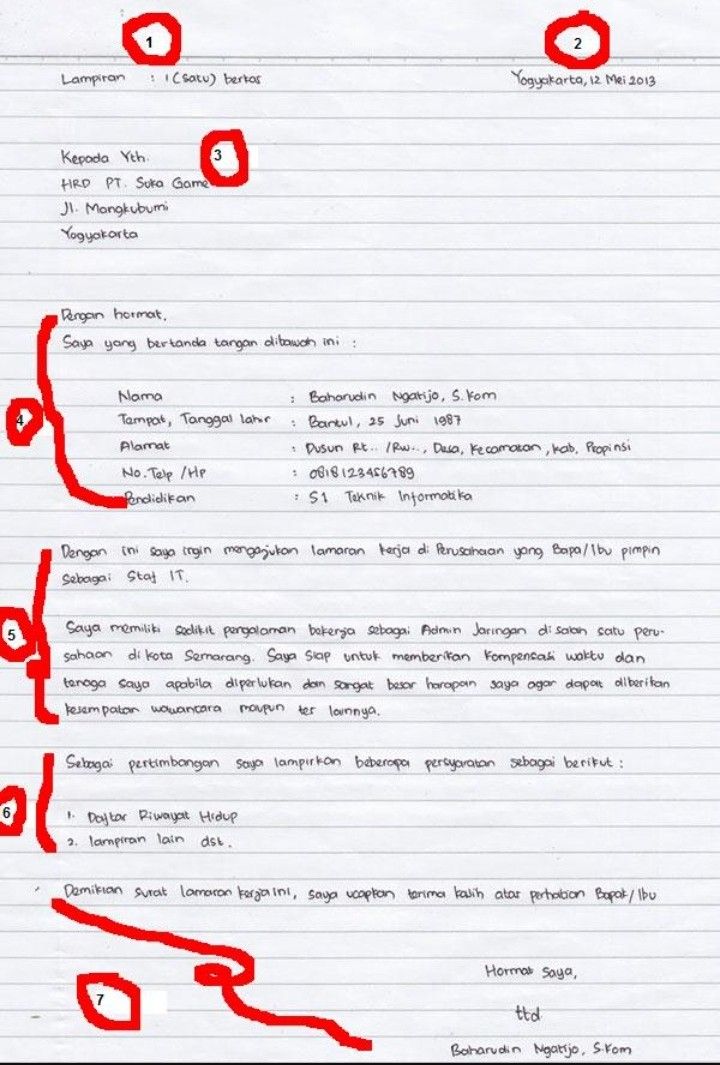 1
2
Lampiran : 1 (satu) berkas
Yogyakarta, 12 Mei 2013
3
Kepada Yth.
HRD PT. Suka Game
Jl. Mangkubumi
Yogyakarta
Dengan hormat,
Saya yang bertanda tangan dibawah ini :
4
Nama : Baharudin Ngatijo, S.Kom
Tempat, Tanggal lahir : Bantul, 25 Juni 1987
Alamat : Dusun Rt.. /Rw.., Desa, Kecamatan, Kab. Propinsi
No. Telp /Hp : 0818123456789
Pendidikan : S1 Teknik Informatika
5
Dengan ini saya ingin mengajukan lamaran kerja di Perusahaan yang Bapa/Ibu pimpin
sebagai Staf IT.
Saya memiliki sedikit pengalaman bekerja sebagai Admin Jaringan di salah satu peru-
sahaan di kota Semarang. Saya siap untuk memberikan kompensasi waktu dan
tenaga saya apabila diperlukan dan sangat besar harapan saya agar dapat diberikan
kesempatan wawancara maupun tes lainnya.
6
Sebagai pertimbangan saya lampirkan beberapa persyaratan sebagai berikut :
1. Daftar Riwayat Hidup
2. lampiran lain dst.
Demikian surat lamaran kerja ini, saya ucapkan terima kasih atas perhatian Bapak/Ibu
7
Hormat Saya,
ttd
Baharudin Ngatijo, S.Kom